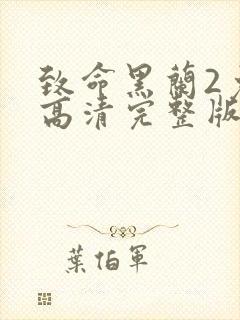 致命黑蘭2
高清完整版
葉伯軍